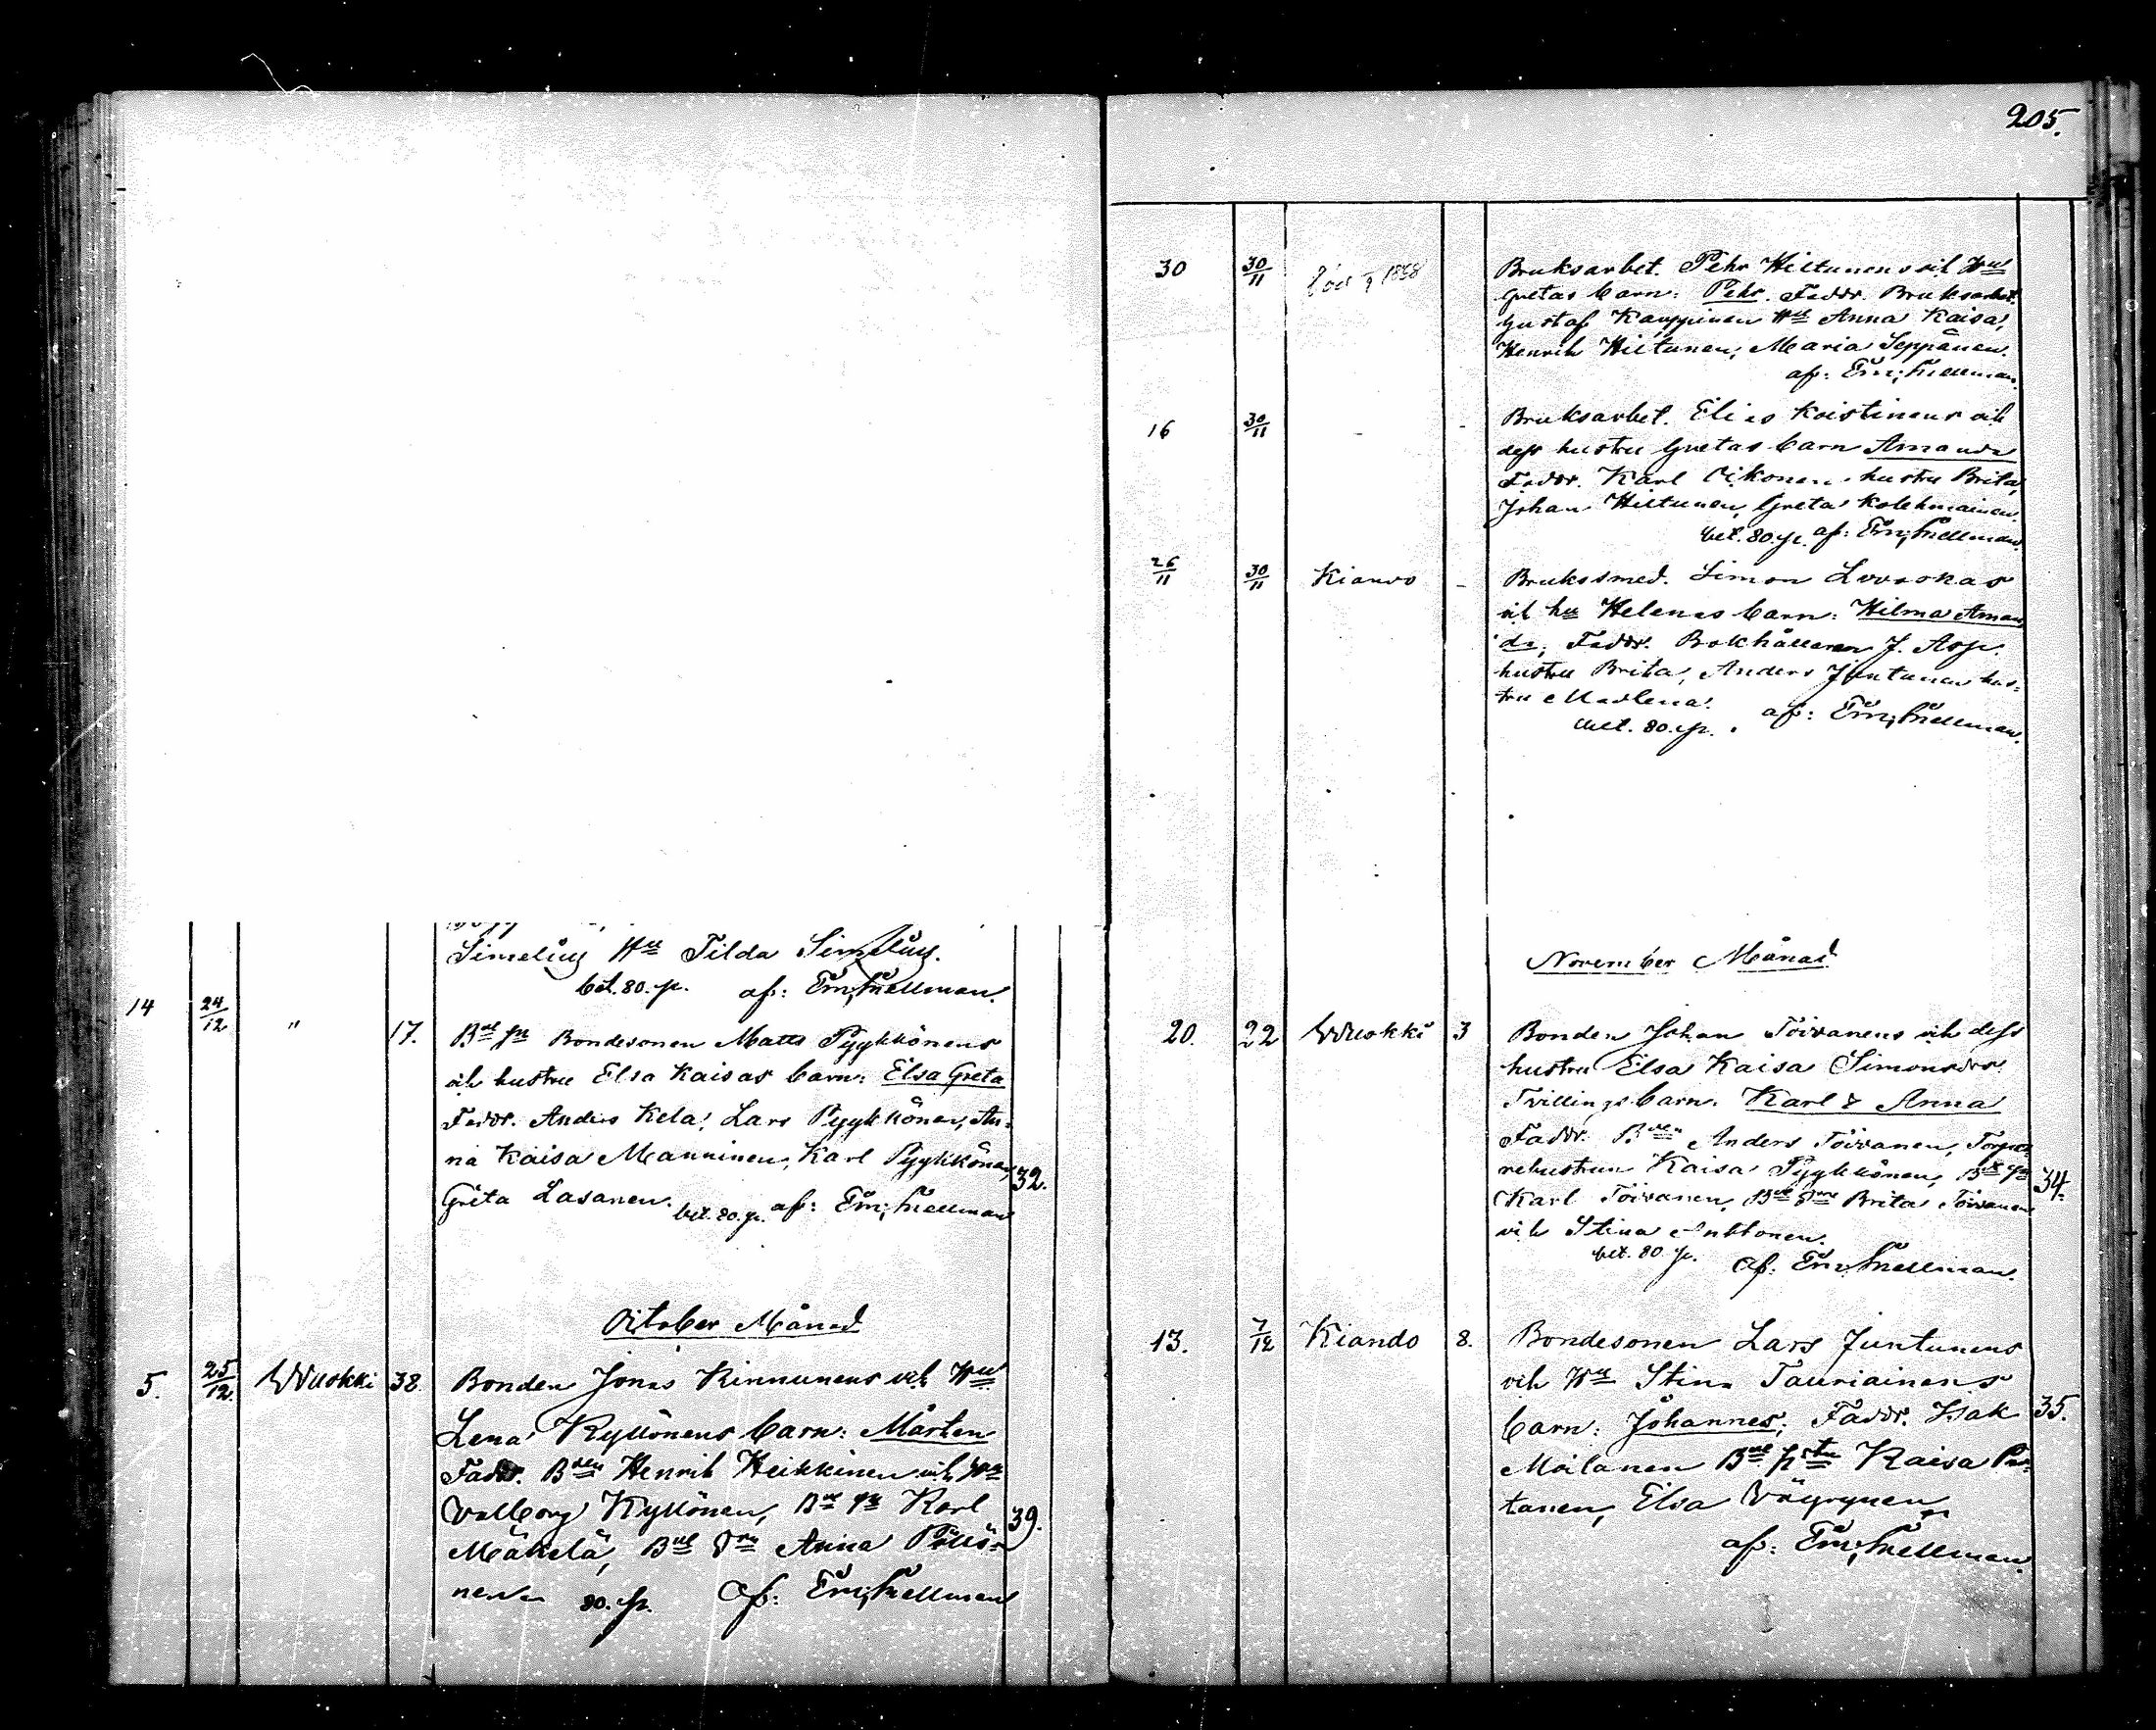 Simelius H^u Tilda Simelius.
bet. 80. p. af: Em; Snellman.
14 24/12 " 17. B^de s^n Bondesonen Matts Pyykkönens
och hustru Elsa Kaisas barn: Elsa Greta
Faddr. Anders Kela, Lars Pyykkönen, An-
na Kaisa Manninen, Karl Pyykkönen, 32.
Greta Lasanen. bet. 80. p. af: Em; Snellman
October Månad
5. 25/12 Wuokki 38. Bonden Jonas Kinnunens och H^u
Lena Kyllönens barn: Mårten
Faddr. B^den Henrik Heikkinen och H^u
Valborg Kyllönen, B^de s^n Karl
Mäkelä, B^de d^r Anna Pöllö- 39.
nen 80. p. af: Em; Snellman
205.
30 30/11 1858 Bruksarbet. Pehr Hiltunens och H^u
Gretas barn: Pehr. Faddr. Bruksarbet.
Gustaf Kauppinen H^u Anna Kaisa,
Henrik Hiltunen, Maria Seppänen.
af: Em; Snellman.
16 30/11 - - Bruksarbet. Elias Koistinens och
dess hustru Gretas barn Amanda
Faddr. Karl Oikonen hustru Brita,
Johan Hiltunen, Greta Kolehmainen.
bet. 80. p. af: Em; Snellman.
26/11 30/11 Kiando - Brukssmed. Simon
och hu Helenas barn: Hilma Aman
da; Faddr. Bokhållaren J. Asp.
hustru Brita, Anders Juntunen hus-
tru Madlena. af: Em; Snellman.
bet. 80. p.
November Månad
20. 22 Wuokki 3 Bonden Johan Toivanens och dess
hustru Elsa Kaisa Simonsdrs
Tvillingsbarn. Karl & Anna
Faddr. B^den Anders Toivanen, Torpa-
rehustrun Kaisa Pyykkönen, B^de s^n 34.
Karl Toivanen, B^de d^r Brita Toivanen
och Stina Anttonen.
bet. 80 p. af: Em; Snellman.
13. 7/12 Kiando 8. Bondesonen Lars Juntunens
och H^u Stina Tauriainens
barn: Johannes; Faddr. Isak 35.
Moilanen B^de Kaisa Par-
tanen, Elsa Väyrynen
af: Em; Snellman.